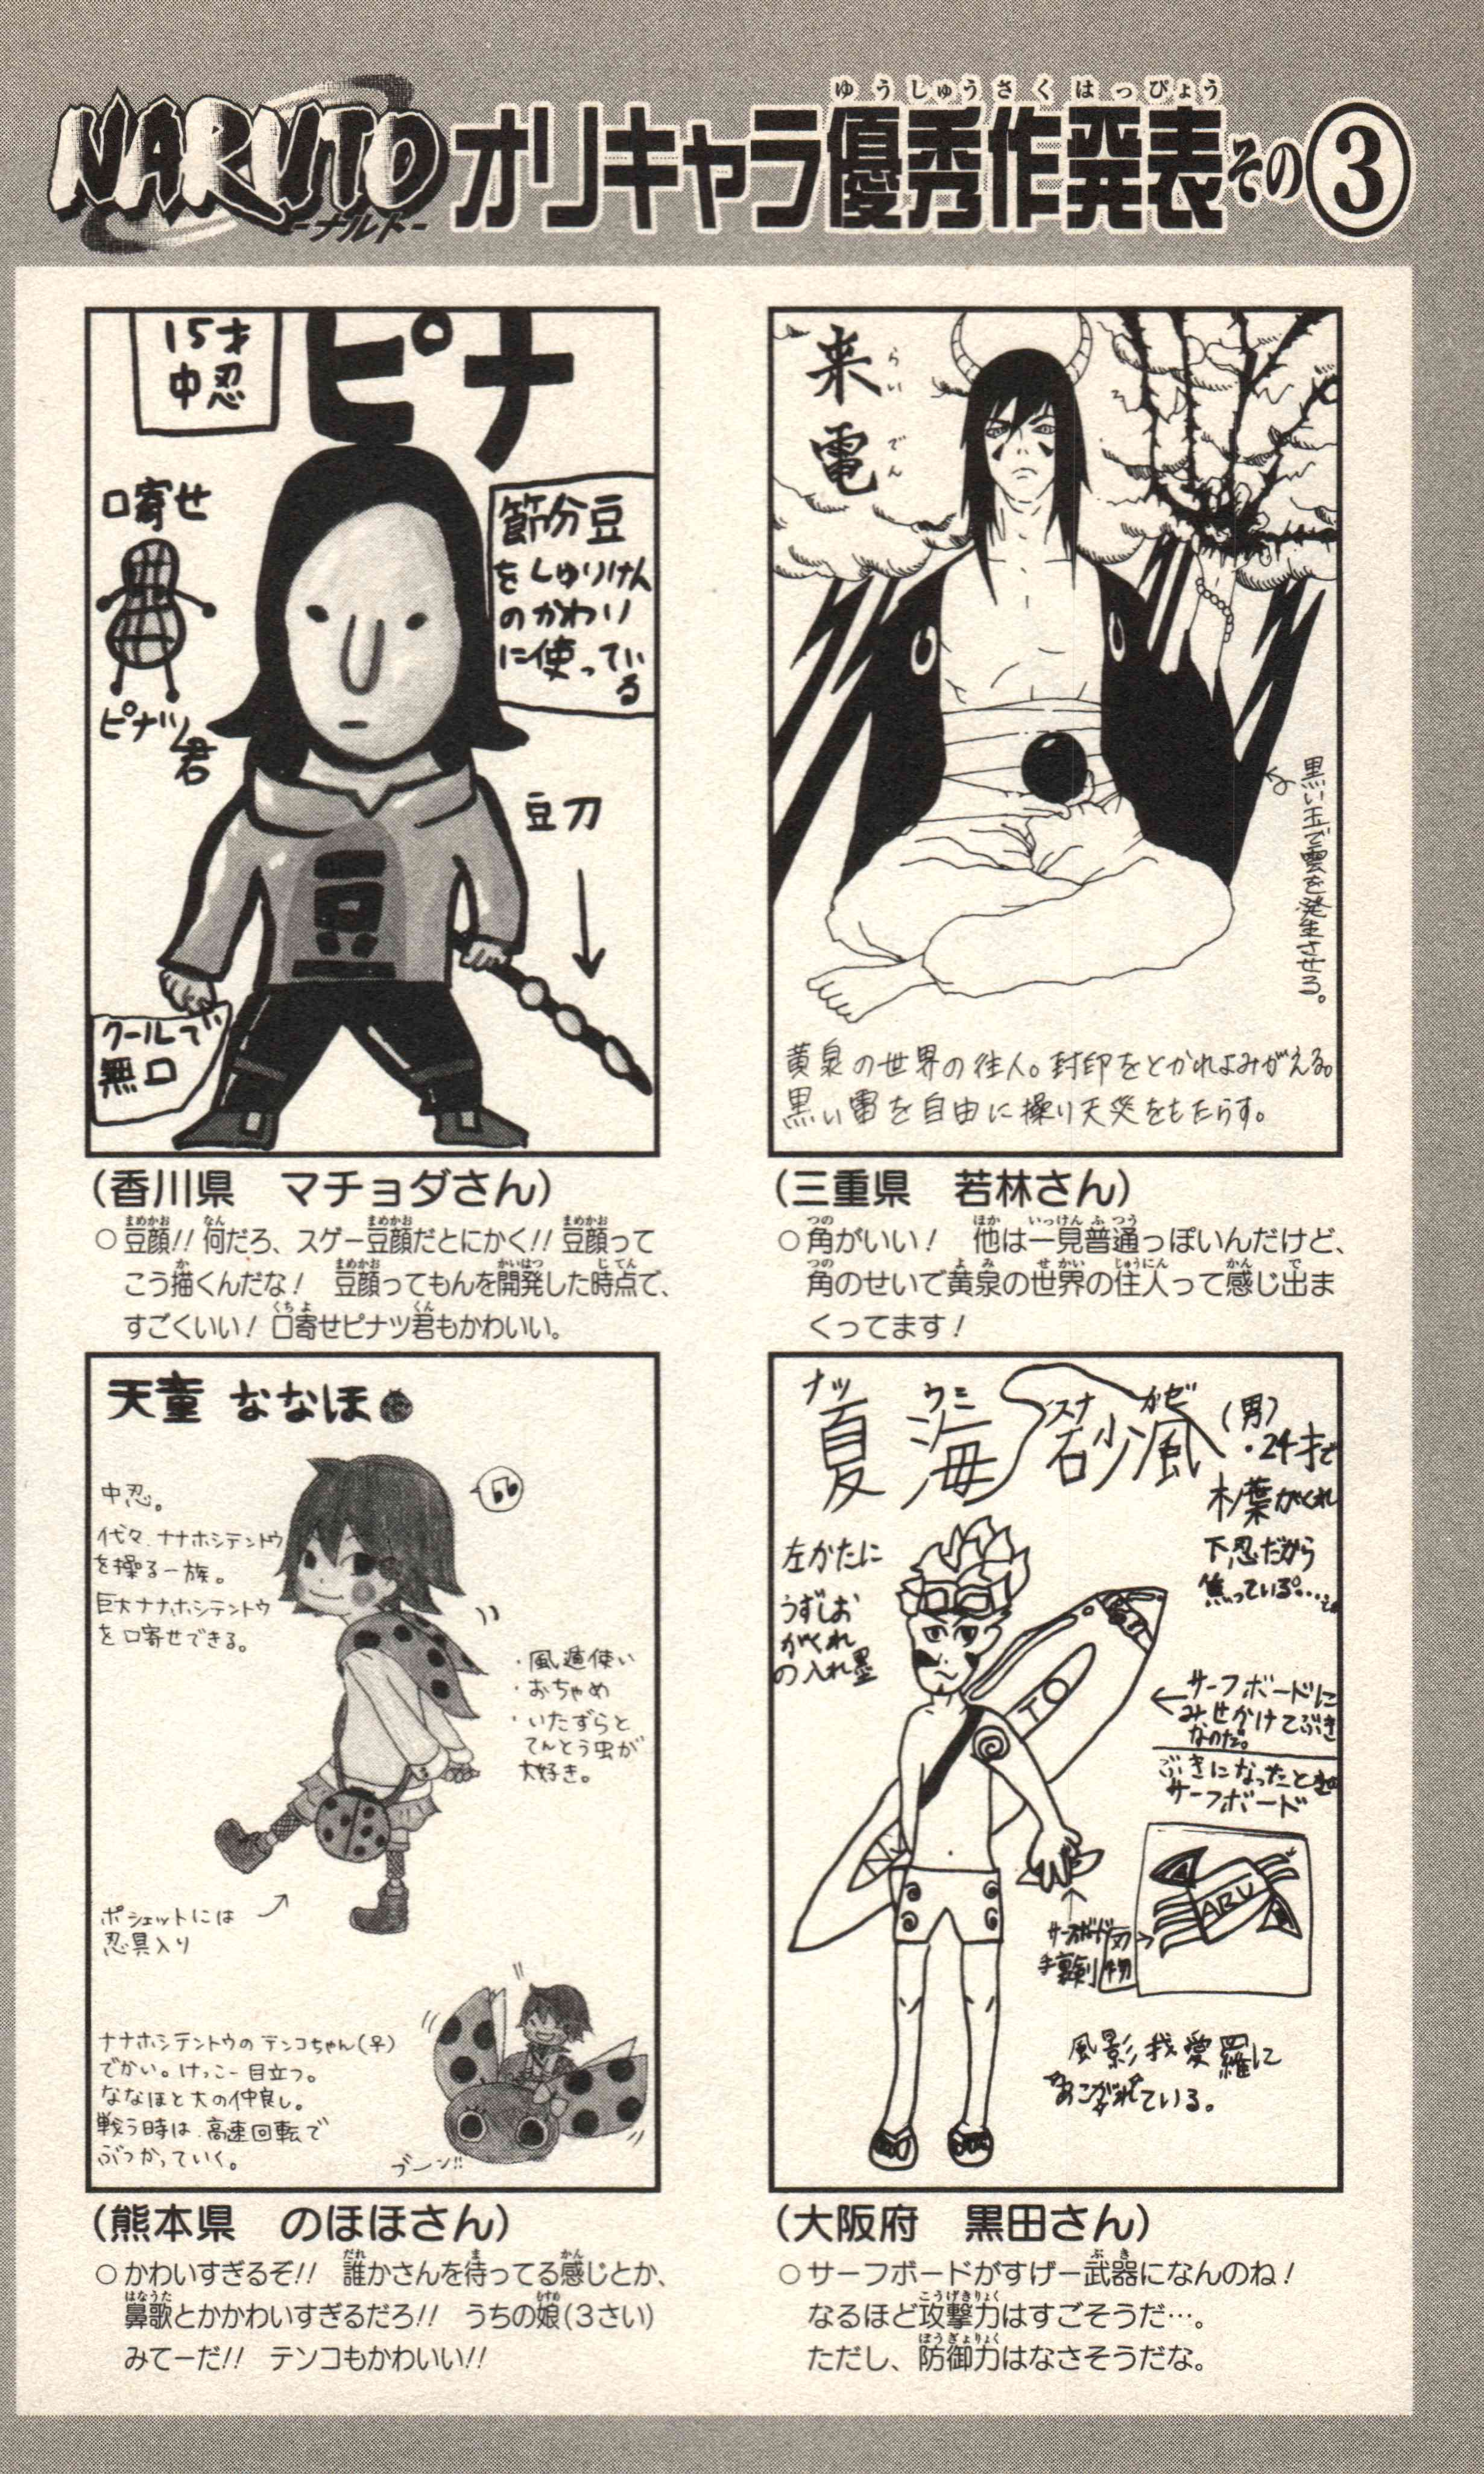 ゆうしゅうさくはっぴょう
NARUTO オリキャラ優秀作発表その③
-ナルト-
15才
中忍
ピナ
口寄せ
ピナツ君
節分豆
をしゅりけん
のかわり
に使ってい
る
豆刀
豆
クールで
無口
(香川県 マチョダさん)
○豆顔!! 何だろ、スゲー豆顔だとにかく!! 豆顔って
こう描くんだな! 豆顔ってもんを開発した時点で、
すごくいい! 口寄せピナツ君もかわいい。
来電
らいでん
黒い玉で雲を発生させる。
黄泉の世界の住人。封印をとかれよみがえる。
黒い雷を自由に操り天災をもたらす。
(三重県 若林さん)
○角がいい! 他は一見普通っぽいんだけど、
角のせいで黄泉の世界の住人って感じ出ま
くってます!
天童 ななほ
中忍。
代々、ナナホシテントウ
を操る一族。
巨大ナナホシテントウ
を口寄せできる。
・風遁使い
・おちゃめ
・いたずらと
てんとう虫が
大好き。
ポシェットには
忍具入り
ナナホシテントウのテンコちゃん(♀)
でかい。けっこー目立つ。
ななほと大の仲良し。
戦う時は、高速回転で
ぶつかっていく。
ブーン!!
(熊本県 のほほさん)
○かわいすぎるぞ!! 誰かさんを待ってる感じとか、
鼻歌とかかわいすぎるだろ!! うちの娘(3さい)
みてーだ!! テンコもかわいい!!
ナツ ウミ スナ カゼ
夏海 砂風
(男)
・24才で
木ノ葉がくれ
下忍だから
焦っている。
左かたに
うずしお
がくれ
の入れ墨
TO
サーフボードに
みせかけてぶき
なのだ。
ぶきになったときの
サーフボード
ARU
サーフボード
手裏剣
刃物
風影我愛羅に
あこがれている。
(大阪府 黒田さん)
○サーフボードがすげー武器になんのね!
なるほど攻撃力はすごそうだ…。
ただし、防御力はなさそうだな。